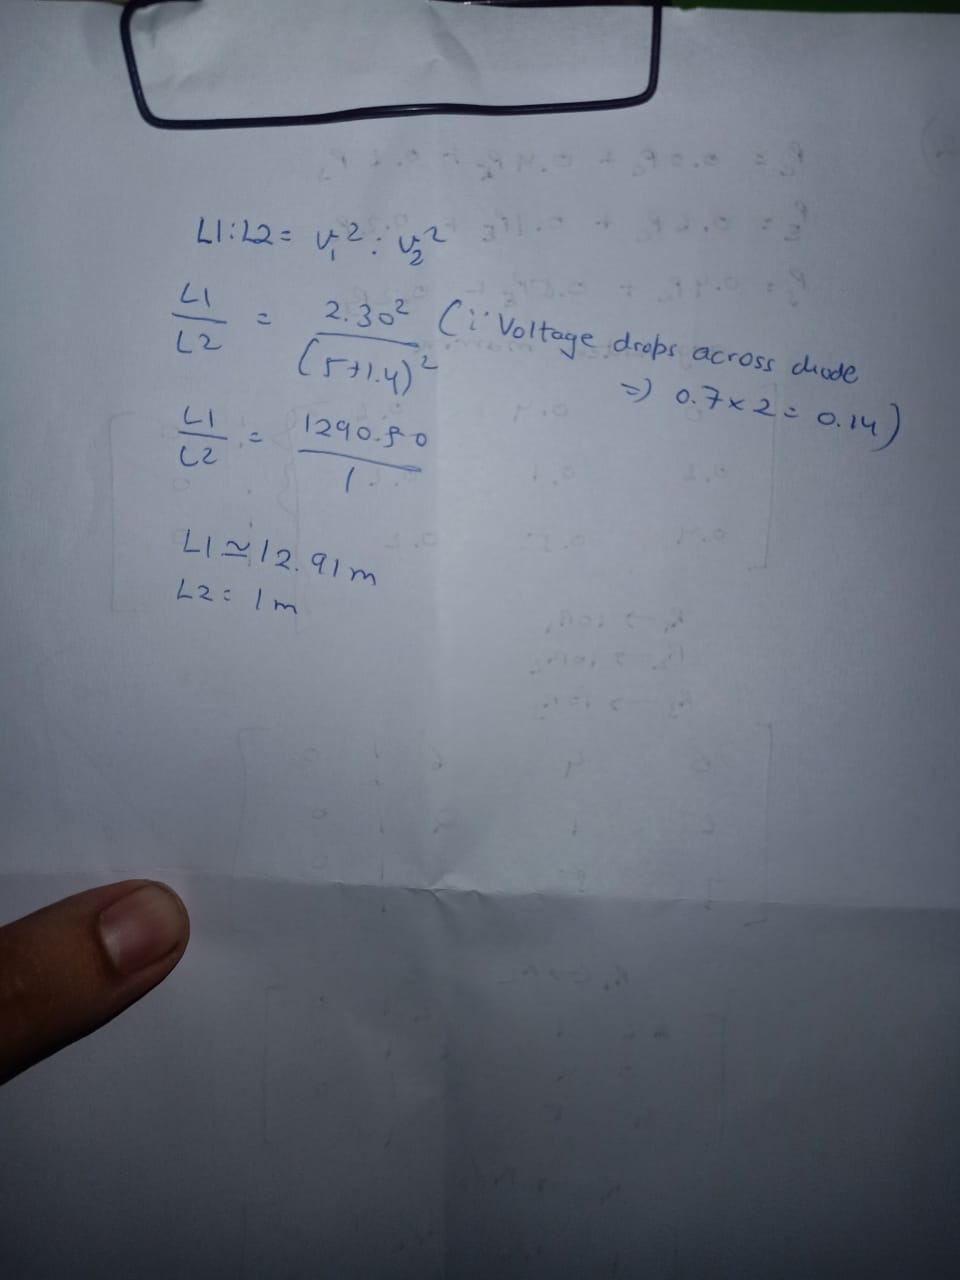 L1:L2 = v₁² : v₂²
L1/L2 = 2.30² / (5+1.4)² (∵ Voltage drops across diode
=> 0.7 x 2 = 0.14)
L1/L2 = 1290.50 / 1
L1 ≃ 12.91m
L2 = 1m